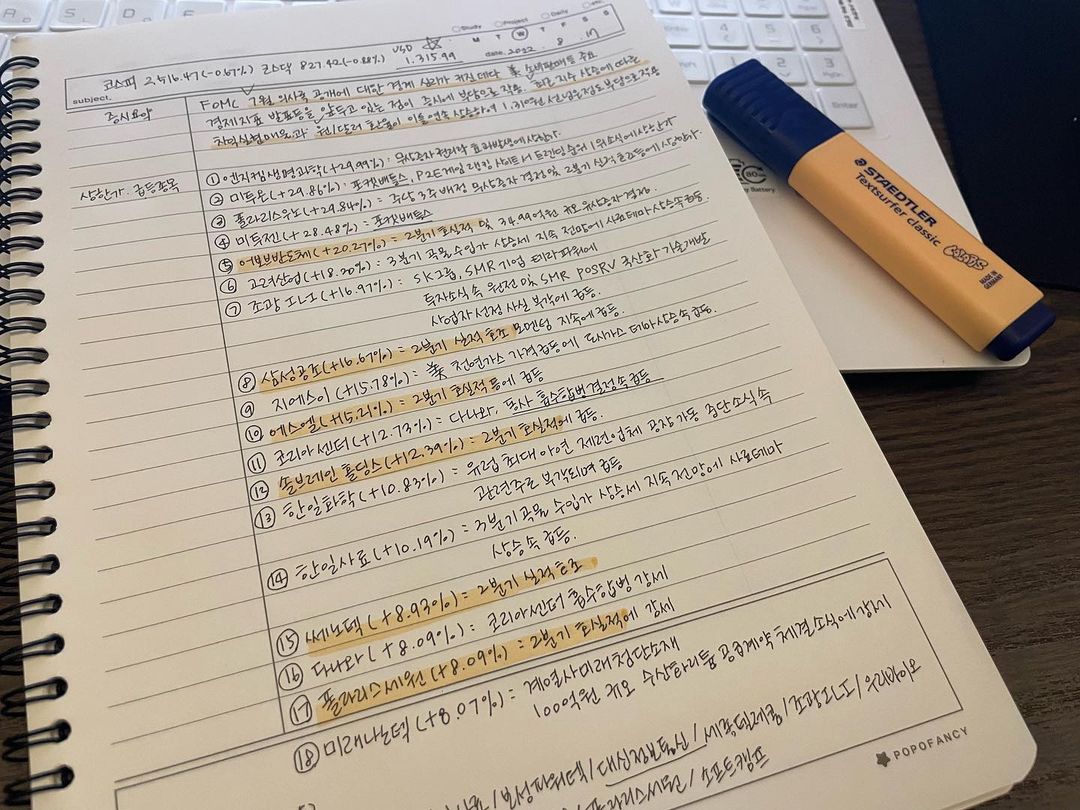 Study Project Daily etc.
M T W T F S S
코스피 2516.47(-0.67%) 코스닥 827.42(-0.88%) USD 1.31599
date. 2022. 8. 17
subject.
증시요약
FOMC 7월 의사록 공개에 대한 경계 심리가 커진데다 美 소매판매등 주요
경제지표 발표등을 앞두고 있는 점이 증시에 부담으로 작용. 최근 지수 상승에 따른
차익실현매물과 원/달러 환율이 이틀연속 상승하여 1,310원 선 넘은점도 부담으로 작용
상한가. 급등종목
① 엔지켐생명과학(+29.99%): 무상증자 권리락 효과발생에 상한가.
② 미투온(+29.86%): 포켓배틀스, P2E게임 랭킹 사이트서 트렌딩 순위 1위소식에 상한가
③ 폴라리스우노(+29.84%): 주당 3주 배정 무상증자 결정 및 2분기 실적호조등에 상한가.
④ 미투젠(+28.48%): 포켓배틀스
⑤ 어보브반도체(+20.27%) = 2분기 호실적 및 34.99억원 규모 유상증자 결정.
⑥ 고려산업(+18.20%): 3분기 곡물 수입가 상승세 지속 전망에 사료테마 상승속 급등.
⑦ 조광 ILI(+16.97%): SK그룹, SMR 기업 테라파워에
투자소식 속 원전 및 SMR POSRV 국산화 기술개발
사업자 선정 사실 부각에 급등.
⑧ 삼성공조(+16.67%) = 2분기 실적 호조 모멘텀 지속에 급등.
⑨ 지에스이(+15.78%) = 美 천연가스 가격급등에 도시가스 테마상승속 급등.
⑩ 에스엘(+15.21%) = 2분기 호실적 등에 급등
⑪ 코리아센터(+12.73%) = 다나와, 동사 흡수합병 결정속 급등
⑫ 솔브레인 홀딩스(+12.39%) = 2분기 호실적에 급등.
⑬ 한일화학(+10.83%) = 유럽 최대 아연 제련업체 공장가동 중단소식 속
관련주로 부각되며 급등
⑭ 한일사료(+10.19%) = 3분기 곡물 수입가 상승세 지속 전망에 사료테마
상승속 급등.
⑮ 쎄노텍(+8.93%) = 2분기 실적호조
⑯ 다나와(+8.09%): 코리아센터 흡수합병 강세
⑰ 폴라리스세원(+8.09%) = 2분기 호실적에 강세
⑱ 미래나노텍(+8.07%) = 계열사 미래첨단소재
1000억원 규모 수산화리튬 공급계약 체결소식에 강세
/ 대신정보통신 / 세작텍제품 / 조광ILI / 우리바이오
/ 폴라리스세원 / 소프트캠프
POPOFANCY
STAEDTLER
Textsurfer classic
COLORS
MADE IN GERMANY
Enter
Battery